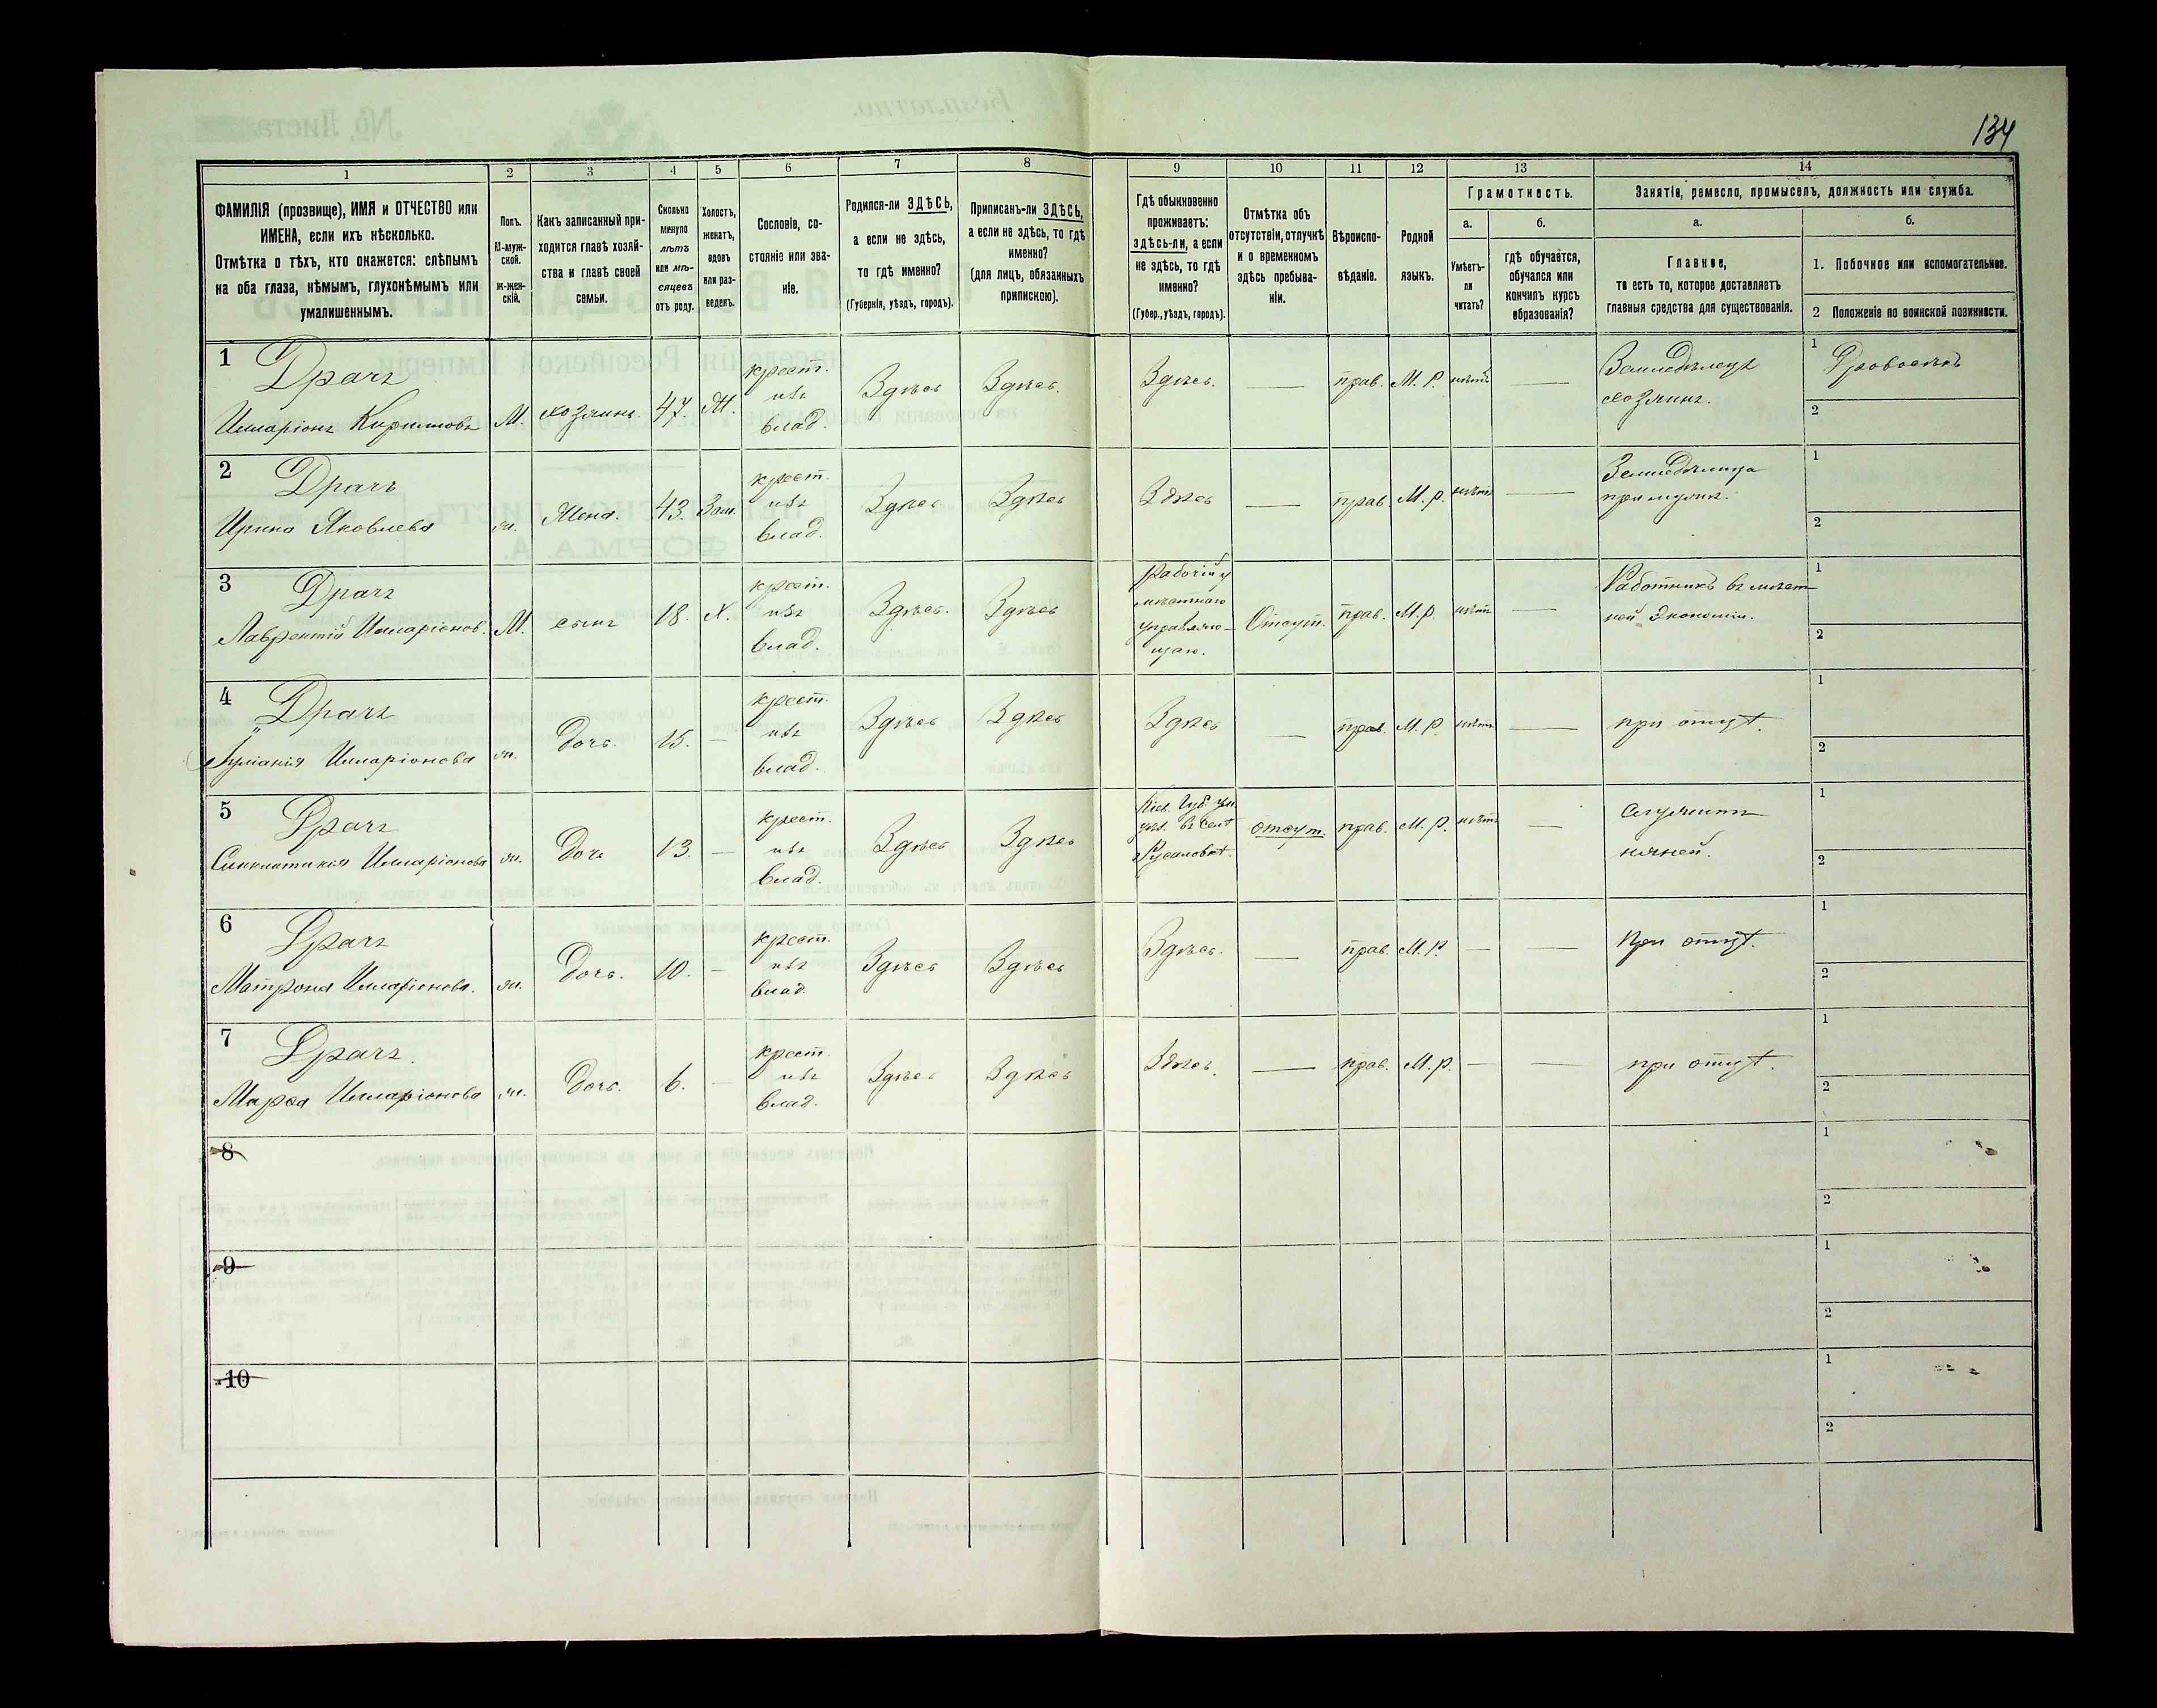 134
1 2 3 4 5 6 7 8 9 10 11 12 13 14
ФАМИЛІЯ (прозвище), ИМЯ и ОТЧЕСТВО или
ИМЕНА, если ихъ нѣсколько.
Отмѣтка о тѣхъ, кто окажется: слѣпымъ
на оба глаза, нѣмымъ, глухонѣмымъ или
умалишеннымъ.
Полъ.
М-муж-
ской.
ж-жен-
скій.
Какъ записанный при-
ходится главѣ хозяй-
ства и главѣ своей
семьи.
Сколько
минуло
лѣтъ
или мѣ-
сяцевъ
отъ роду.
Холостъ,
женатъ,
вдовъ
или раз-
веденъ.
Сословіе, со-
стояніе или зва-
ніе.
Родился-ли ЗДѢСЬ,
а если не здѣсь,
то гдѣ именно?
(Губернія, уѣздъ, городъ).
Приписанъ-ли ЗДѢСЬ,
а если не здѣсь, то гдѣ
именно?
(для лицъ, обязанныхъ
припискою).
Гдѣ обыкновенно
проживаетъ:
здѣсь-ли, а если
не здѣсь, то гдѣ
именно?
(Губер., уѣздъ, городъ).
Отмѣтка объ
отсутствіи, отлучкѣ
и о временномъ
здѣсь пребыва-
ніи.
Вѣроиспо-
вѣданіе.
Родной
языкъ.
Грамотность.
а.
Умѣетъ-
ли
читать?
б.
гдѣ обучается,
обучался или
кончилъ курсъ
образованія?
Занятіе, ремесло, промыселъ, должность или служба.
а.
Главное,
то есть то, которое доставляетъ
главныя средства для существованія.
б.
1. Побочное или вспомогательное.
2 Положеніе по воинской повинности.
1 Драчъ
Илларіонъ М. хозяинъ. 47. Ж.
крест.
изъ
влад.
Здѣсь Здѣсь. Здѣсь. — прав. М. Р. нѣтъ —
Земледѣлецъ
хозяинъ.
1 Дровосѣкъ
2
2 Драчъ
Ирина Яковлева ж. Жена. 43. Зам.
крест.
изъ
влад.
Здѣсь Здѣсь Здѣсь — прав. М. р. нѣтъ —
Земледѣлица
при мужѣ.
1
2
3 Драчъ
Лаврентій Илларіонов. М. сынъ 18. Х.
крест.
изъ
влад.
Здѣсь. Здѣсь
Рабочій у
мѣстнаго
управляю-
щаго.
Отсут. прав. М. р. нѣтъ —
Работникъ въ мѣст-
ной Экономіи.
1
2
4 Драчъ
Илларіонова ж. Дочь. 15. —
крест.
изъ
влад.
Здѣсь Здѣсь Здѣсь — прав. М. Р. нѣтъ — при отцѣ.
1
2
5 Драчъ
Синклитикія Илларіонова ж. Дочь 13. —
крест.
изъ
влад.
Здѣсь Здѣсь
Кіев. Губ.
отсут. прав. М. р. нѣтъ —
Служитъ
няней.
1
2
6 Драчъ
Матрона Илларіонова. ж. Дочь. 10. —
крест.
изъ
влад.
Здѣсь Здѣсь Здѣсь. — прав. М. Р. — — При отцѣ.
1
2
7 Драчъ.
Марѳа Илларіонова ж. Дочь. 6. —
крест.
изъ
влад.
Здѣсь Здѣсь Здѣсь. — прав. М. р. — — при отцѣ.
1
2
8
1
2
9
1
2
10
1
2